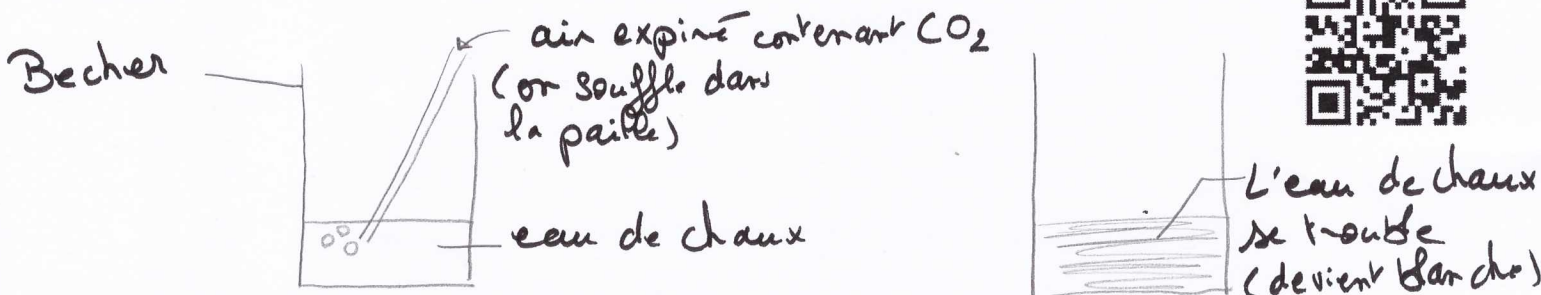 Becher
air expiré contenant CO2
(on souffle dans
la paille)
eau de chaux
L'eau de chaux
se trouble
(devient blanche)